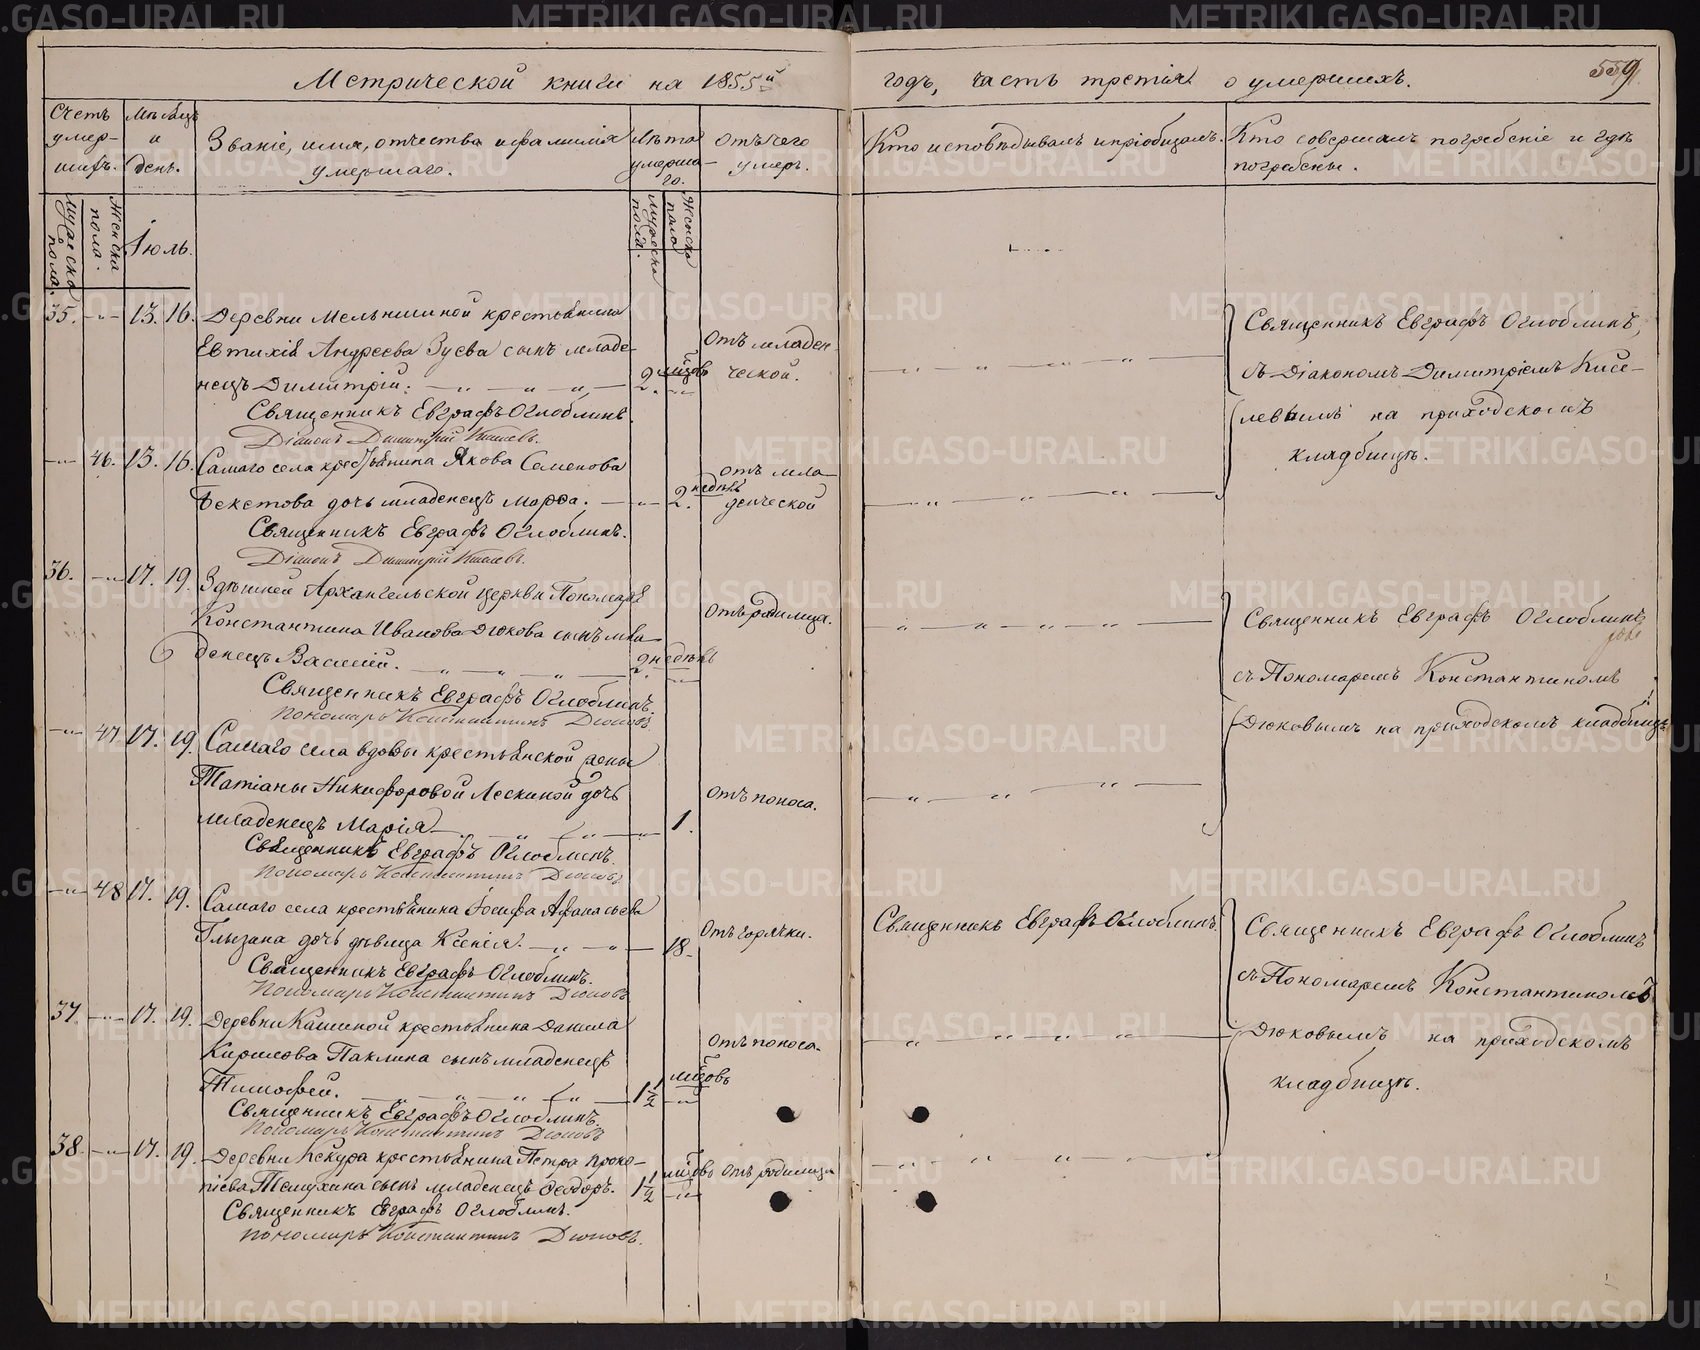 Метрической книги на 1855й годъ, часть третія о умершихъ.
559
Счетъ умер-шихъ.
Мѣсяцъ и день.
Званіе, имя, отчества и фамилія умершаго.
Лѣта умерша-го.
Отъ чего умеръ.
Кто исповѣдывалъ и пріобщалъ.
Кто совершалъ погребеніе и гдѣ погребены.
Мужеска пола.
Женска пола.
Іюль.
Мужеска пола.
Женска пола
35. 13. 16. Деревни Мельнишной крестьянина
Евтихія Андреева Зуева сынъ младе-
нецъ Димитрій. 2 мцовъ
Отъ младен-
ческой.
Священникъ Евграфъ Оглоблинъ.
Діаконъ Димитрій Киселевъ.
Священникъ Евграфъ Оглоблинъ,
съ Діакономъ Димитріемъ Кисе-
левымъ на приходскомъ
кладбищѣ.
46. 13. 16. Самаго села крестьянина Якова Семенова
Бекетова дочь младенецъ Марѳа. 2. недѣль
отъ мла-
денческой
Священникъ Евграфъ Оглоблинъ.
Діаконъ Димитрій Киселевъ.
36. 17. 19. Здѣшней Архангельской церкви Пономаря
Константина Иванова Дюкова сынъ мла-
денецъ Василій. 2 недѣль
Отъ родимца.
Священникъ Евграфъ Оглоблинъ.
Пономарь Константинъ Дюковъ
Священникъ Евграфъ Оглоблинъ
съ Пономаремъ Константиномъ
Дюковымъ на приходскомъ кладбищѣ
47. 17. 19. Самаго села вдовы крестьянской жены
Татіаны Никифоровой Лескиной дочь
младенецъ Марія 1.
Отъ поноса.
Священникъ Евграфъ Оглоблинъ.
Пономарь Константинъ Дюковъ
48 17. 19. Самаго села крестьянина Іосифа Афанасьева
Глызана дочь дѣвица Ксенія. 18.
Отъ горячки.
Священникъ Евграфъ Оглоблинъ.
Священникъ Евграфъ Оглоблинъ.
Пономарь Константинъ Дюковъ
Священникъ Евграфъ Оглоблинъ
съ Пономаремъ Константиномъ
Дюковымъ на приходскомъ
кладбищѣ.
37. 17. 19. Деревни Кашиной крестьянина Данила
Кирилова Паклина сынъ младенецъ
Тимофей. 1 1/2 мцовъ
Отъ поноса.
Священникъ Евграфъ Оглоблинъ.
Пономарь Константинъ Дюковъ
38. 17. 19. Деревни Кекура крестьянина Петра Проко-
піева Темухина сынъ младенецъ Ѳеодоръ. 1 1/2 мцовъ Отъ родимца
Священникъ Евграфъ Оглоблинъ.
Пономарь Константинъ Дюковъ.
METRIKI.GASO-URAL.RU